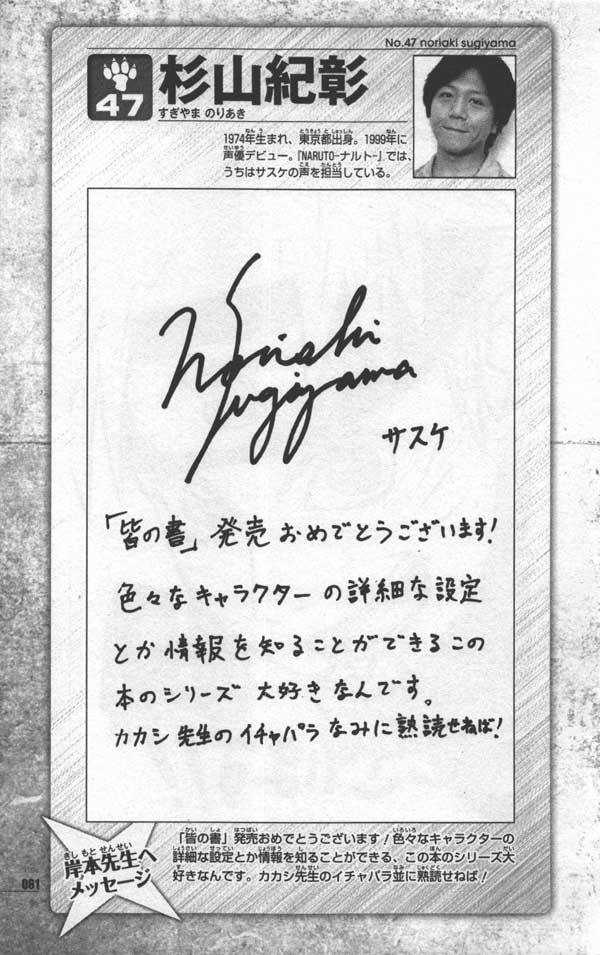 No.47 noriaki sugiyama
47
杉山紀彰
すぎやま のりあき
1974年生まれ、東京都出身。1999年に
声優デビュー。『NARUTO-ナルト-』では、
うちはサスケの声を担当している。
Noriaki
Sugiyama
サスケ
「皆の書」発売おめでとうございます!
色々なキャラクターの詳細な設定
とか情報を知ることができるこの
本のシリーズ大好きなんです。
カカシ先生のイチャパラなみに熟読せねば!
岸本先生へ
メッセージ
「皆の書」発売おめでとうございます!色々なキャラクターの
詳細な設定とか情報を知ることができる、この本のシリーズ大
好きなんです。カカシ先生のイチャパラ並に熟読せねば!
081